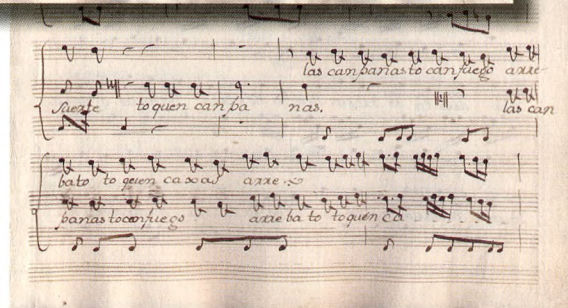 las canpanas to can fuego arre
fuerte toquen canpa nas. las can
bato to quen caxas arre
panas tocan fuego arre ba to toquen ca